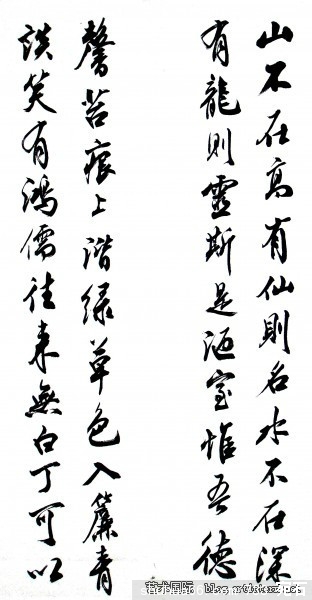 山不在高有仙則名水不在深
有龍則靈斯是陋室惟吾德
馨苔痕上階綠草色入簾青
談笑有鴻儒往来無白丁可以
艺术国际